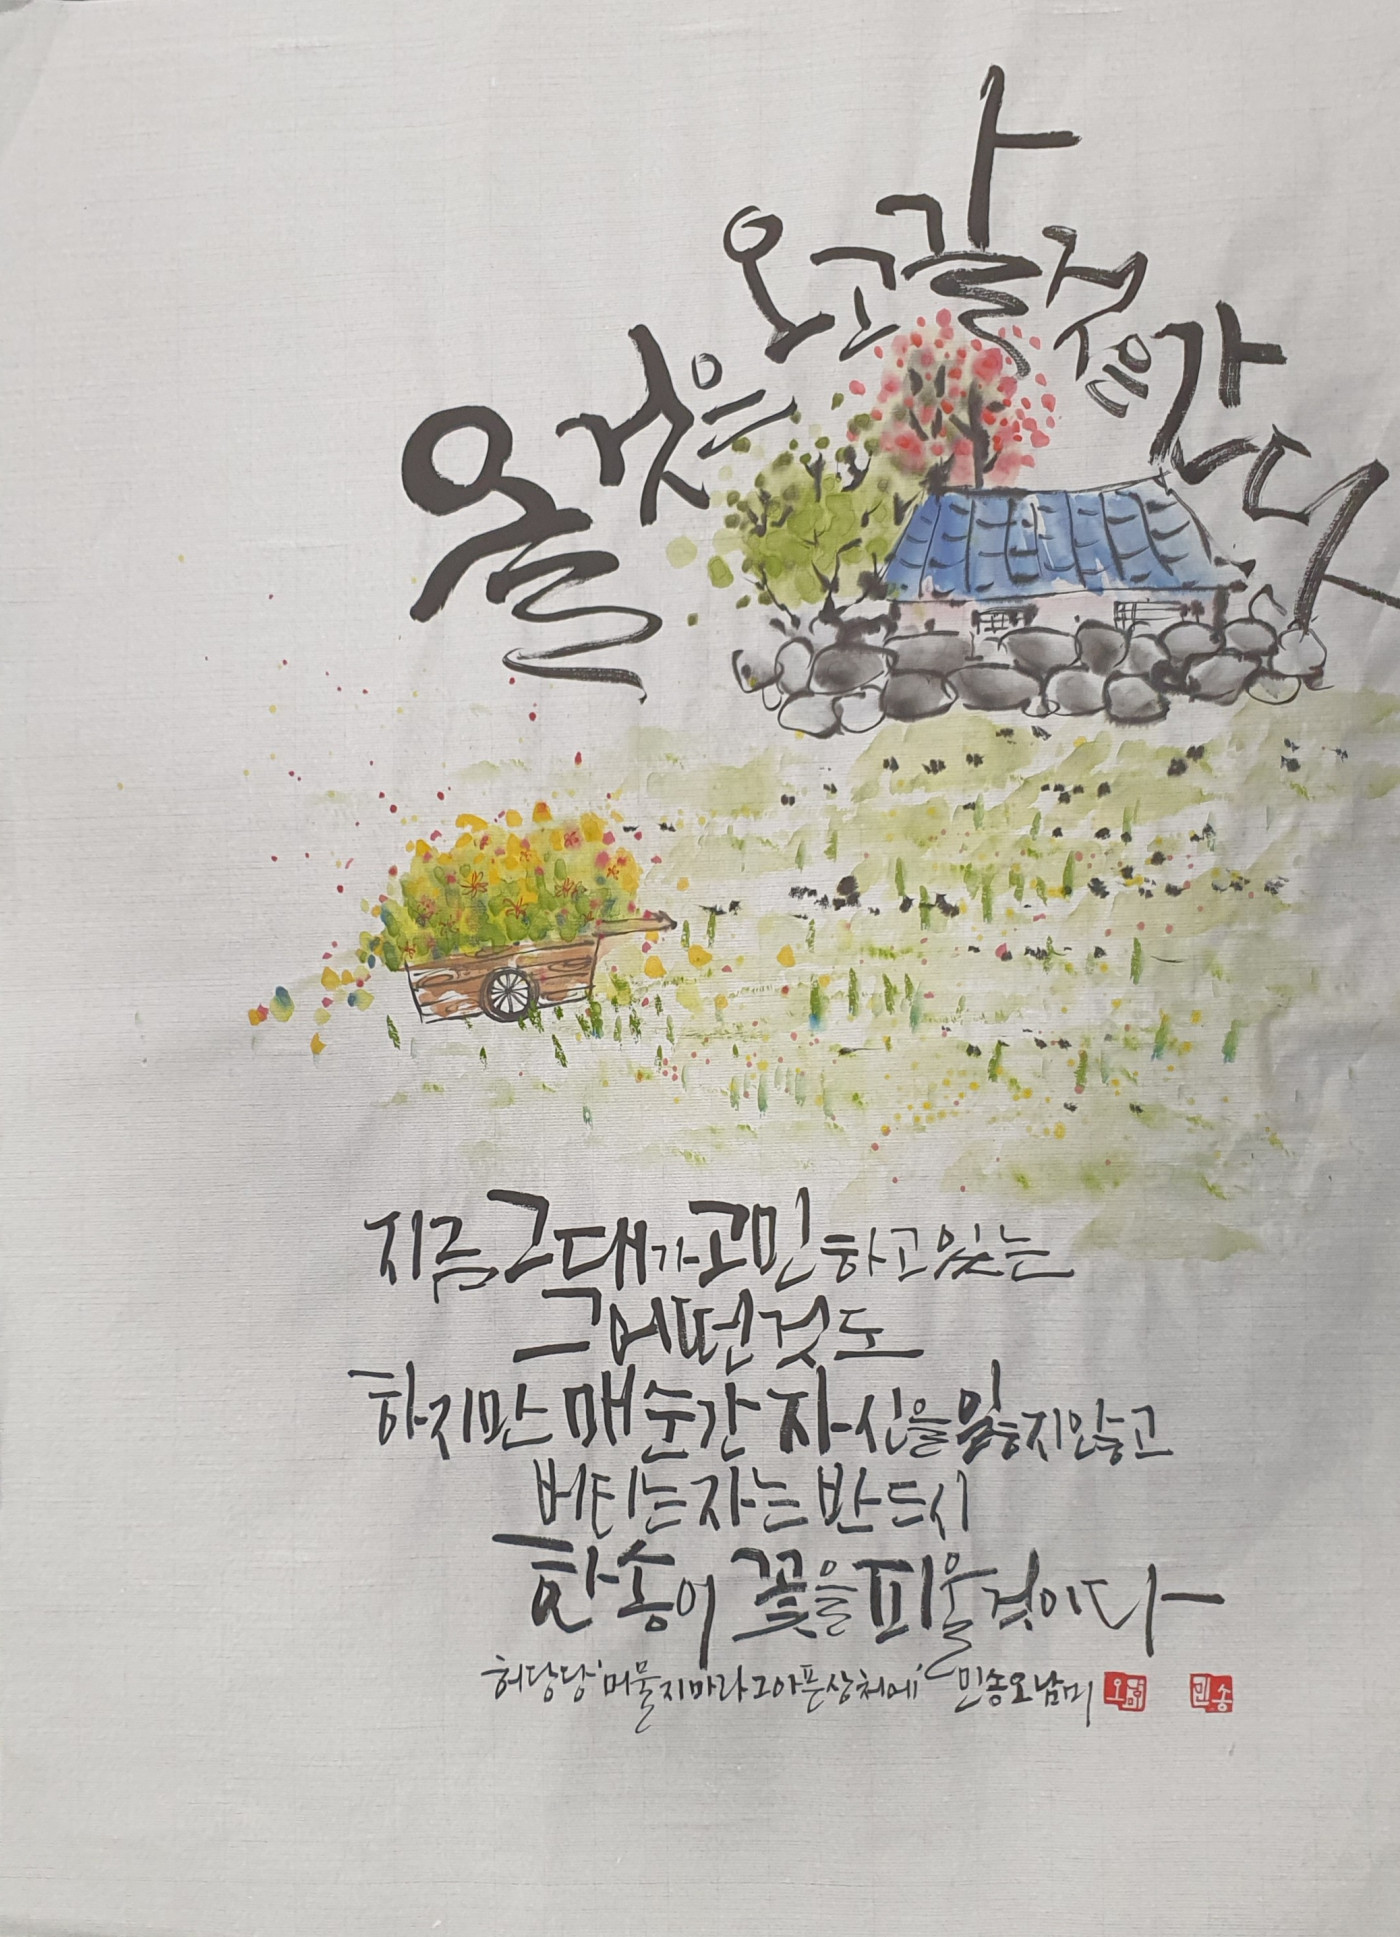 올 것은 오고 갈 것은 간다
지금 그대가 고민하고 있는
그 어떤 것도
하지만 매 순간 자신을 잃지 않고
버티는 자는 반드시
한 송이 꽃을 피울 것이다
허당당 '머물지마라 그 아픈 상처에' 민송 오남미
민송